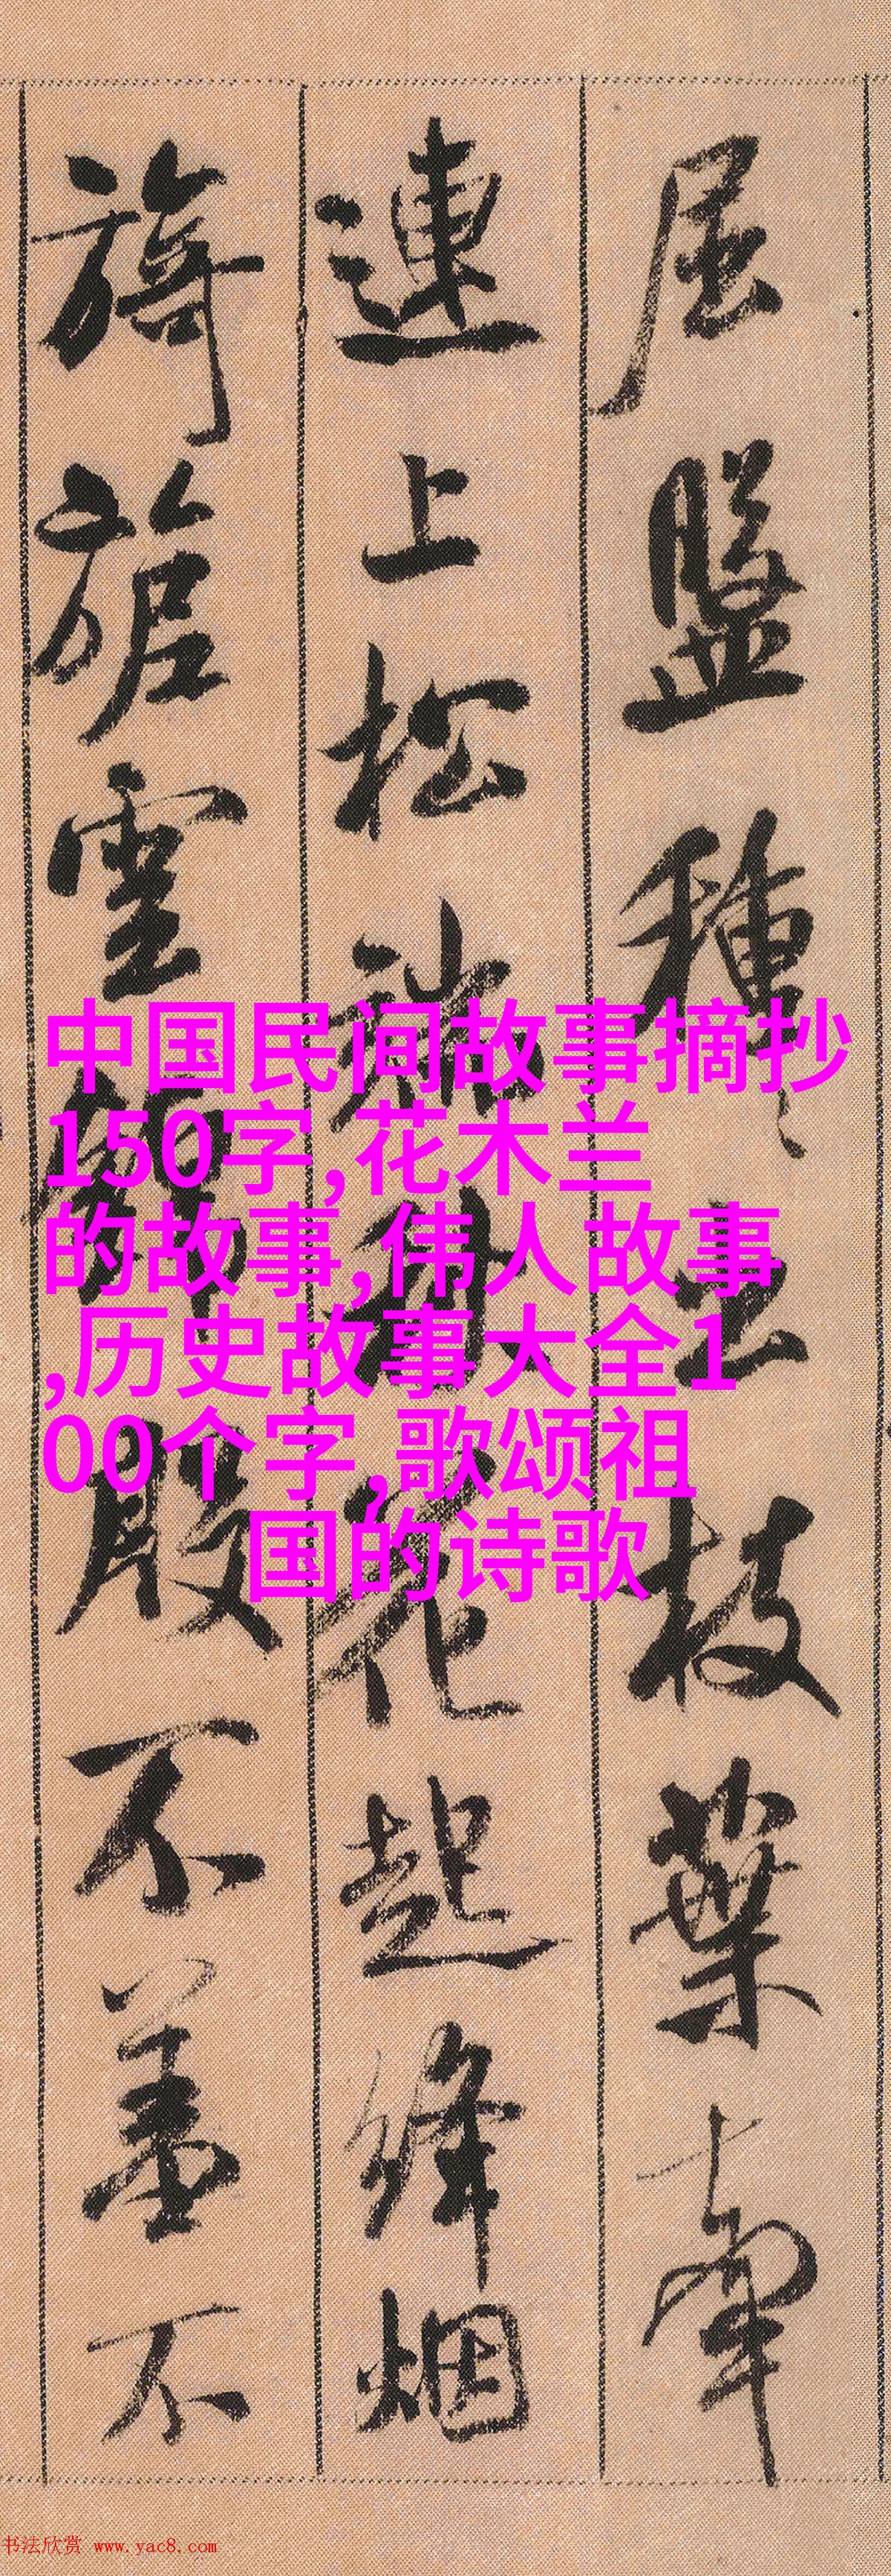 屈盤種〻出枝葉牽
連上松端秋花起絳烟
旖旎雲錦殷不羞不
中国民间故事摘抄
150字,花木兰
的故事,伟人故事
,历史故事大全1
00个字,歌颂祖
国的诗歌
书法欣赏 www.yac8.com